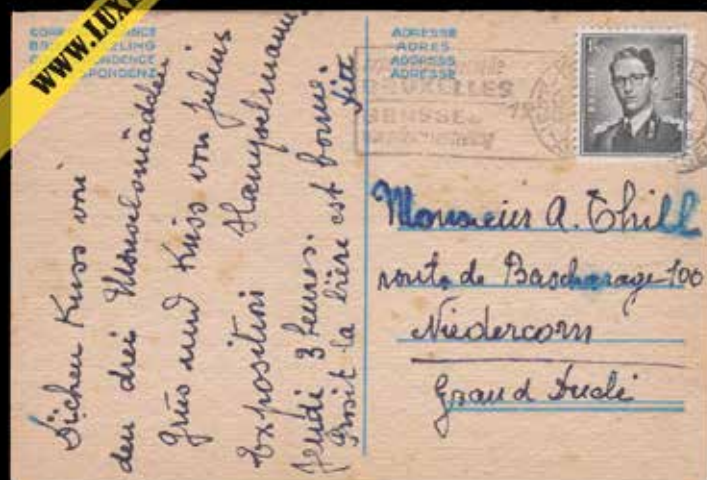 WWW.LUX
CORRESPONDANCE
BRIEFWISSELING
CORRESPONDENCE
KORRESPONDENZ
ADRESSE
ADRES
ADDRESS
ADRESSE
BRUXELLES
BRUSSEL
Kuss von
den drei
Gruss und Kuss von Julius
Hampelmann
Exposition
Jeudi 3 heures.
Prosit la bière est bonne.
Monsieur A. Thill
route de Bascharage 100
Niedercorn
Grand Duché